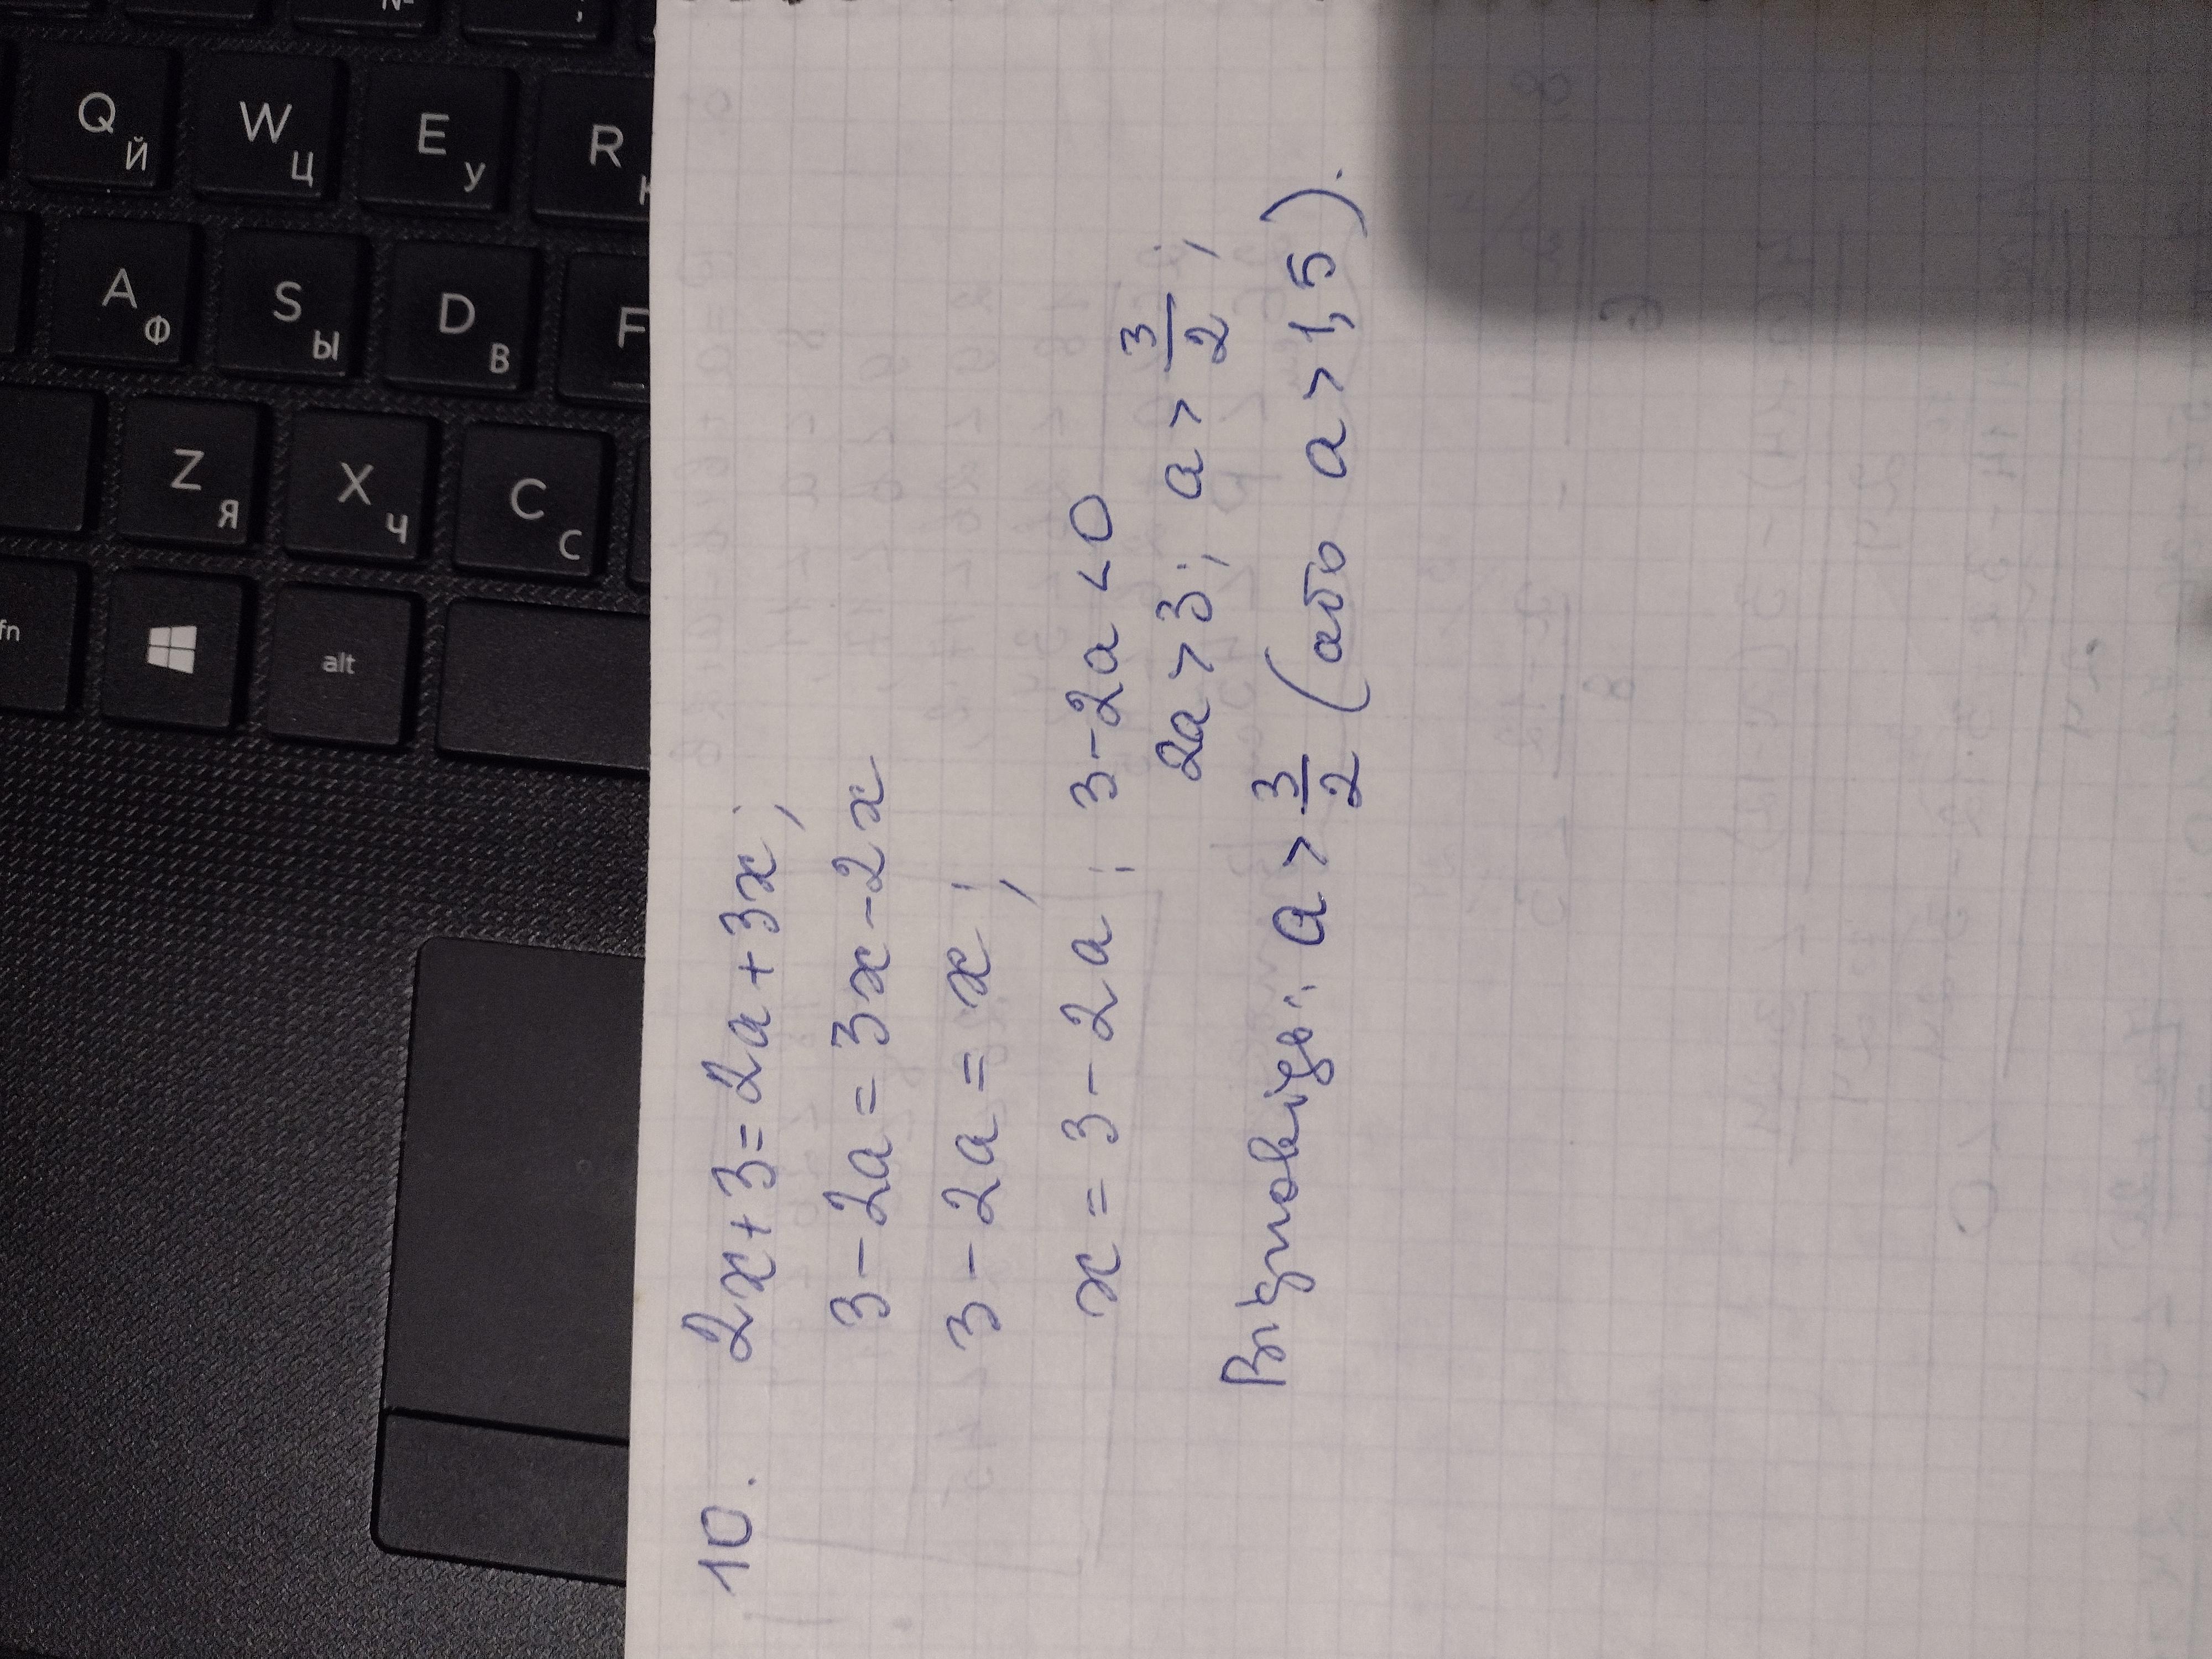 10. 2x+3=2a+3x;
3-2a=3x-2x
3-2a=x;
x=3-2a; 3-2a<0
2a>3; a>3/2;
Відповідь: a>3/2 (або a>1,5).
Q Й W Ц E У R
A Ф S Ы D В F
Z Я X Ч C С
fn alt